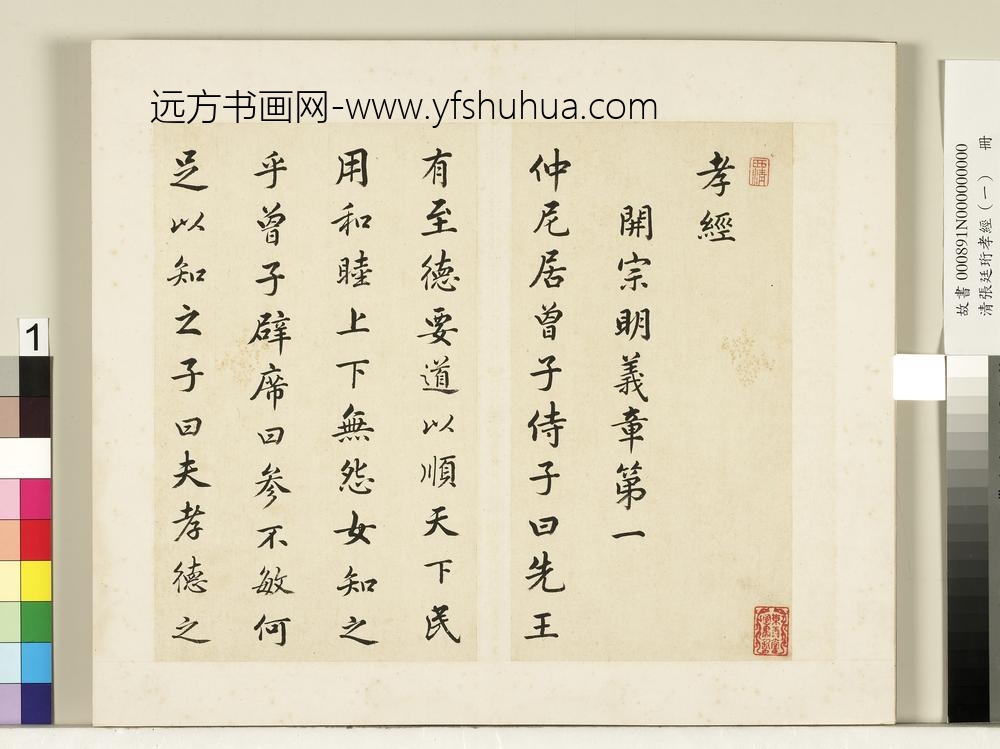 远方书画网-www.yfshuhua.com
孝經
開宗明義章第一
仲尼居曾子侍子曰先王
有至德要道以順天下民
用和睦上下無怨女知之
乎曾子辟席曰參不敏何
足以知之子曰夫孝德之
西清
故書 000891N000000000
清張廷珩孝經(一) 冊
1